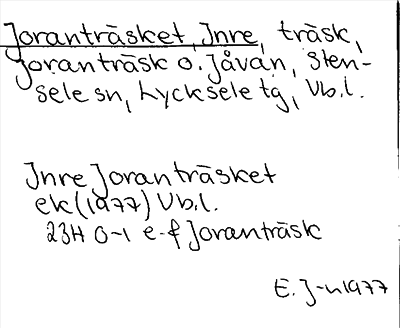 Joranträsket, Inre, träsk,
Joranträsk o. Jåvan, Sten-
sele sn, Lycksele tg, Vb.l.
Inre Joranträsket
ek (1977) Vb.l.
23H 0-1 e-f Joranträsk
E. J-n 1977